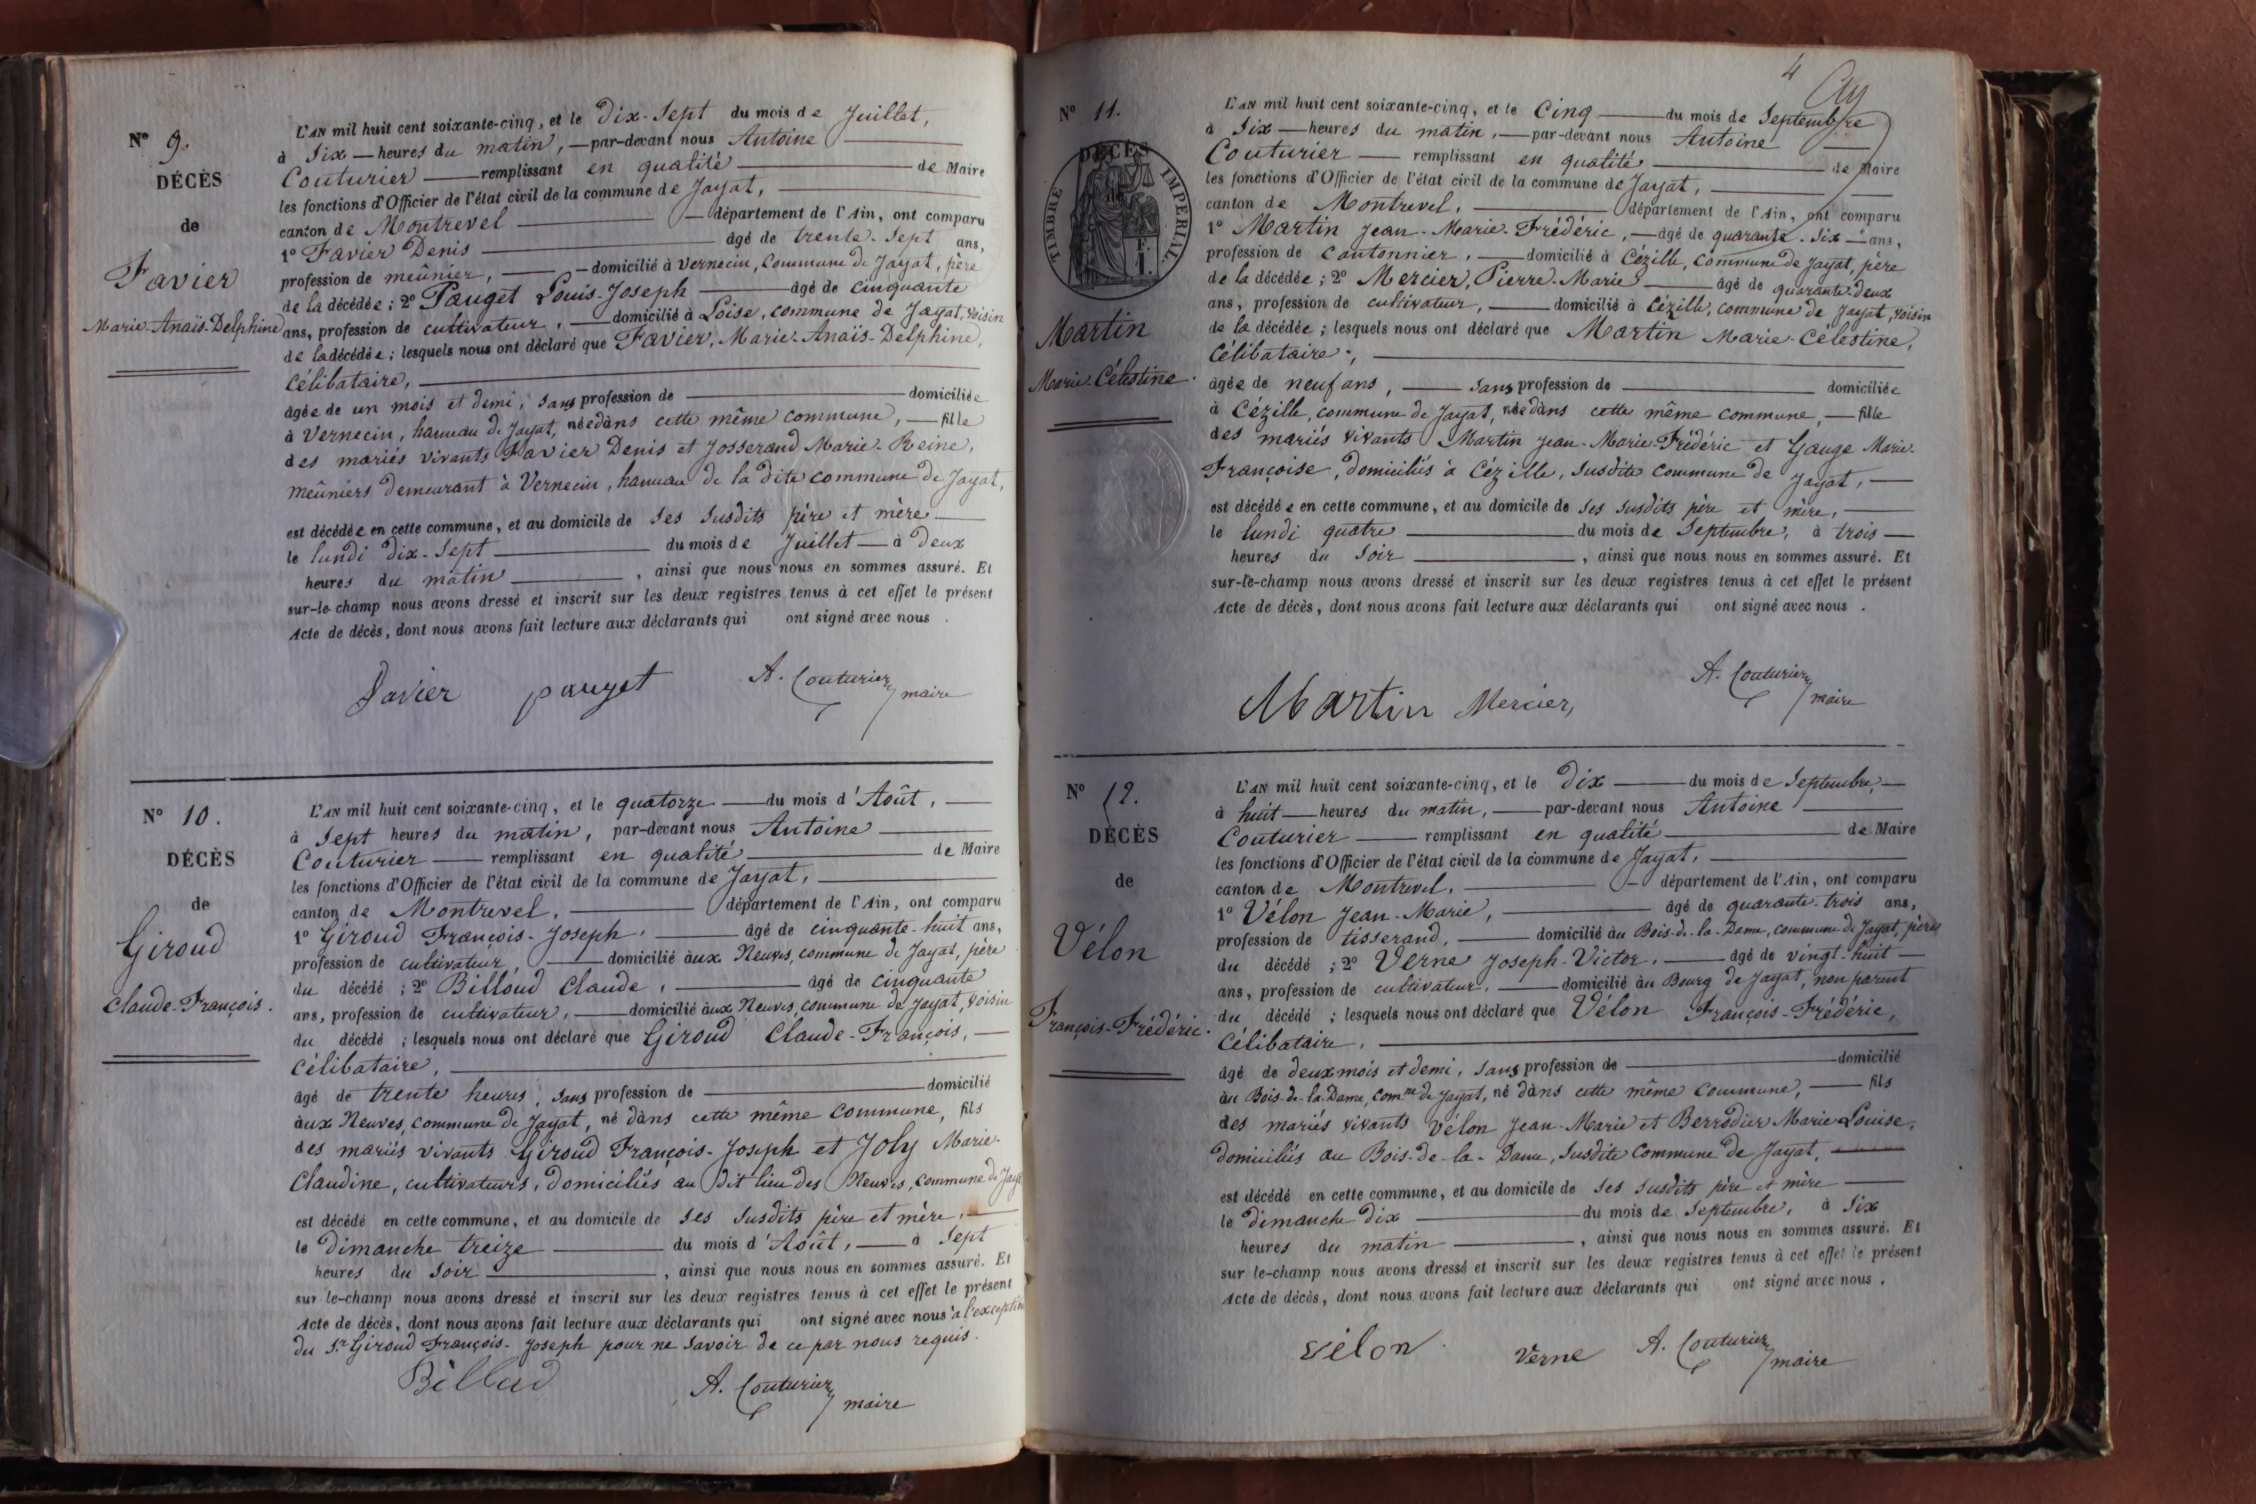 N° 9.
DÉCÈS
de
Favier
Marie-Anaïs-Delphine
L'AN mil huit cent soixante-cinq, et le Dix-Sept du mois de Juillet,
à Six heures du matin, par-devant nous Antoine
Couturier remplissant en qualité de Maire
les fonctions d'Officier de l'état civil de la commune de Jayat,
canton de Montrevel département de l'Ain, ont comparu
1° Favier Denis âgé de trente-Sept ans,
profession de meûnier, domicilié à Vernecin, commune de Jayat, père
de la décédée; 2° Pauget Louis-Joseph âgé de cinquante
ans, profession de cultivateur, domicilié à Loise, commune de Jayat, voisin
de la décédée; lesquels nous ont déclaré que Favier, Marie-Anaïs-Delphine,
Célibataire,
âgée de un mois et demi, sans profession de domiciliée
à Vernecin, hameau de Jayat, née dans cette même commune, fille
des mariés vivants Favier Denis et Josserand Marie-Reine,
meûniers demeurant à Vernecin, hameau de la dite commune de Jayat,
est décédée en cette commune, et au domicile de ses susdits père et mère
le lundi dix-sept du mois de Juillet à Deux
heures du matin, ainsi que nous nous en sommes assuré. Et
sur-le-champ nous avons dressé et inscrit sur les deux registres tenus à cet effet le présent
Acte de décès, dont nous avons fait lecture aux déclarants qui ont signé avec nous.
Favier pauget A. Couturier maire
N° 10.
DÉCÈS
de
Giroud
Claude-François.
L'AN mil huit cent soixante-cinq, et le quatorze du mois d'Août,
à Sept heures du matin, par-devant nous Antoine
Couturier remplissant en qualité de Maire
les fonctions d'Officier de l'état civil de la commune de Jayat,
canton de Montrevel, département de l'Ain, ont comparu
1° Giroud François-Joseph, âgé de cinquante-huit ans,
profession de cultivateur, domicilié aux Neuves, commune de Jayat, père
du décédé; 2° Billoud Claude, âgé de cinquante
ans, profession de cultivateur, domicilié aux Neuves, commune de Jayat, voisin
du décédé; lesquels nous ont déclaré que Giroud Claude-François,
Célibataire,
âgé de trente heures, sans profession de domicilié
aux Neuves, commune de Jayat, né dans cette même commune, fils
des mariés vivants Giroud François-Joseph et Joly Marie-
Claudine, cultivateurs, domiciliés au dit lieu des Neuves, commune de Jayat
est décédé en cette commune, et au domicile de ses susdits père et mère,
le Dimanche treize du mois d'Août, à Sept
heures du Soir, ainsi que nous nous en sommes assuré. Et
sur le-champ nous avons dressé et inscrit sur les deux registres tenus à cet effet le présent
Acte de décès, dont nous avons fait lecture aux déclarants qui ont signé avec nous à l'exception
du Sr Giroud François-Joseph pour ne savoir de ce par nous requis.
A. Couturier maire
4
N° 11.
DÉCÈS
de
TIMBRE IMPERIAL
Martin
Marie-Célestine.
L'AN mil huit cent soixante-cinq, et le Cinq du mois de Septembre
à Six heures du matin, par-devant nous Antoine
Couturier remplissant en qualité de Maire
les fonctions d'Officier de l'état civil de la commune de Jayat,
canton de Montrevel, département de l'Ain, ont comparu
1° Martin Jean-Marie-Frédéric, âgé de quarante-six ans,
profession de Cantonnier, domicilié à Cézille, commune de Jayat, père
de la décédée; 2° Mercier, Pierre-Marie âgé de quarante-deux
ans, profession de cultivateur, domicilié à Cézille, commune de Jayat, voisin
de la décédée; lesquels nous ont déclaré que Martin Marie-Célestine,
Célibataire,
âgée de neuf ans, sans profession de domiciliée
à Cézille, commune de Jayat, née dans cette même commune, fille
des mariés vivants Martin Jean-Marie-Frédéric et Gauge Marie-
Françoise, domiciliés à Cézille, susdite commune de Jayat,
est décédée en cette commune, et au domicile de ses susdits père et mère,
le lundi quatre du mois de Septembre, à trois
heures du Soir, ainsi que nous nous en sommes assuré. Et
sur-le-champ nous avons dressé et inscrit sur les deux registres tenus à cet effet le présent
Acte de décès, dont nous avons fait lecture aux déclarants qui ont signé avec nous.
Martin Mercier, A. Couturier maire
N° 12.
DÉCÈS
de
Vélon
François-Frédéric.
L'AN mil huit cent soixante-cinq, et le Dix du mois de Septembre,
à huit heures du matin, par-devant nous Antoine
Couturier remplissant en qualité de Maire
les fonctions d'Officier de l'état civil de la commune de Jayat,
canton de Montrevel, département de l'Ain, ont comparu
1° Vélon Jean-Marie, âgé de quarante-trois ans,
profession de tisserand, domicilié au Bois-de-la-Dame, commune de Jayat, père
du décédé; 2° Verne Joseph-Victor, âgé de vingt-huit
ans, profession de cultivateur, domicilié au Bourg de Jayat, non parent
du décédé; lesquels nous ont déclaré que Vélon François-Frédéric,
Célibataire,
âgé de deux mois et demi, sans profession de domicilié
au Bois-de-la-Dame, comne de Jayat, né dans cette même commune, fils
des mariés vivants Vélon Jean-Marie et Berrodier Marie-Louise,
domiciliés au Bois-de-la-Dame, susdite commune de Jayat,
est décédé en cette commune, et au domicile de ses susdits père et mère
le Dimanche dix du mois de Septembre, à Six
heures du matin, ainsi que nous nous en sommes assuré. Et
sur le-champ nous avons dressé et inscrit sur les deux registres tenus à cet effet le présent
Acte de décès, dont nous avons fait lecture aux déclarants qui ont signé avec nous.
vélon verne A. Couturier maire